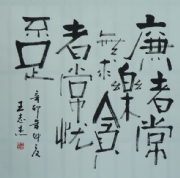 廉者常
樂無求貪
者常忧
不足
辛卯年仲夏
王志杰